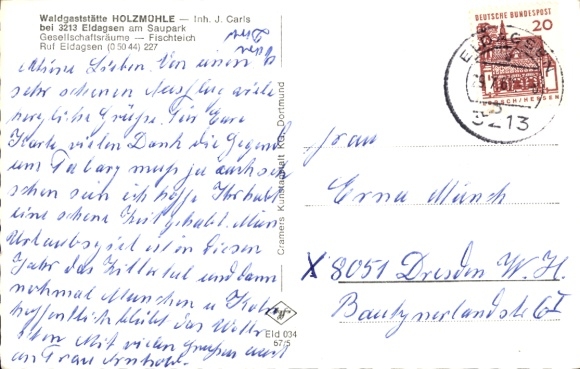 Waldgaststätte HOLZMÜHLE — Inh. J. Carls
bei 3213 Eldagsen am Saupark
Gesellschaftsräume — Fischteich
Ruf Eldagsen (0 50 44) 227
Meine Lieben. Von einem
sehr schönen Ausflug viele
herzliche Grüße. Für Eure
Karte vielen Dank die Gegend
um Tabarz muß ja auch sehr
schön sein ich hoffe Ihr habt
eine schöne Zeit gehabt. Mein
Urlaubsziel ist in diesen
Jahr das Zillertal und dann
nochmal München u
hoffentlich bleibt das Wetter
Mit vielen Grüßen auch
an Frau
Cramers Kunstanstalt KG, Dortmund
Eld 034
67/5
DEUTSCHE BUNDESPOST
20
ELDAGSEN
3213
Frau
Erna Münch
X 8051 Dresden W. H.
Bautznerlandstr 61